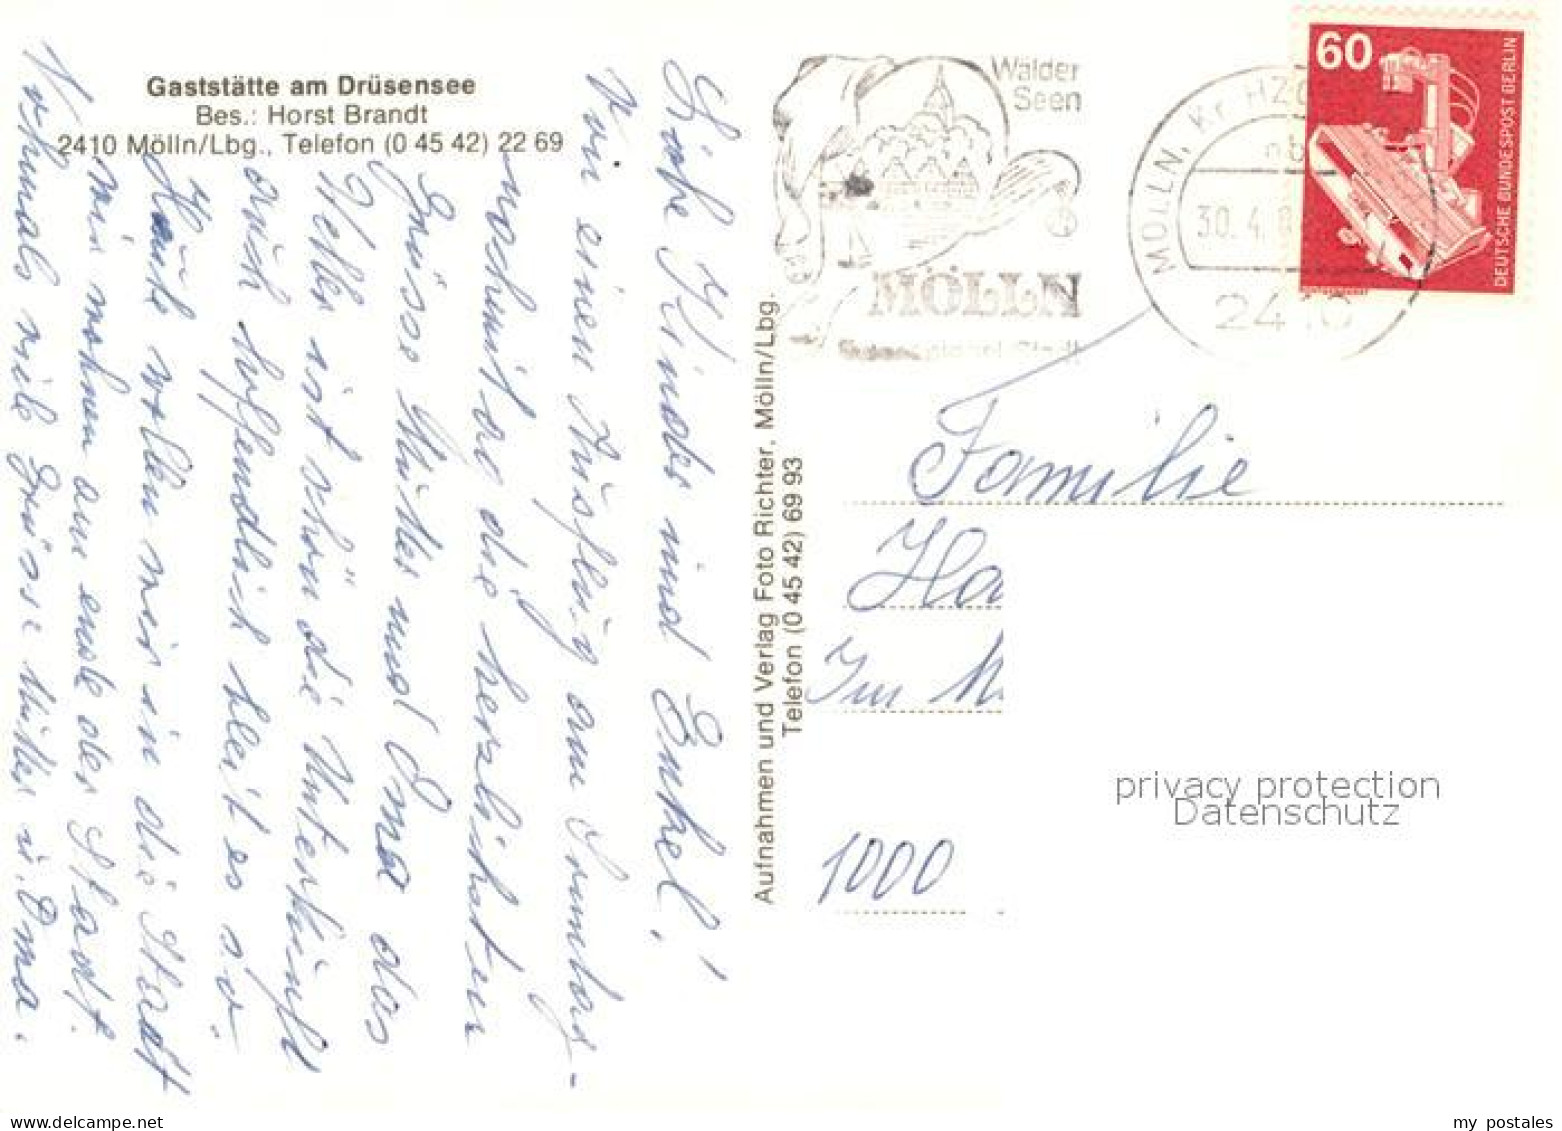 Gaststätte am Drüsensee
Bes.: Horst Brandt
2410 Mölln/Lbg., Telefon (0 45 42) 22 69
Liebe Kinder und Enkel!
Von einen Ausflug am Sonntag-
nachmittag die herzlichsten
Grüsse Mutter und Oma das
Wetter ist schön die Unterkunft
auch hoffendlich bleit es so.
Heute wollen wir in die Stadt
wir wohnen am ende der Stadt.
Nochmals viele Grüsse Mutter u. Oma.
Aufnahmen und Verlag Foto Richter, Mölln/Lbg.
Telefon (0 45 42) 69 93
Wälder
Seen
MÖLLN
MÖLLN, Kr HZG
30.4.8
2410
60
DEUTSCHE BUNDESPOST BERLIN
Familie
Ha
Im
1000
privacy protection
Datenschutz
my postales